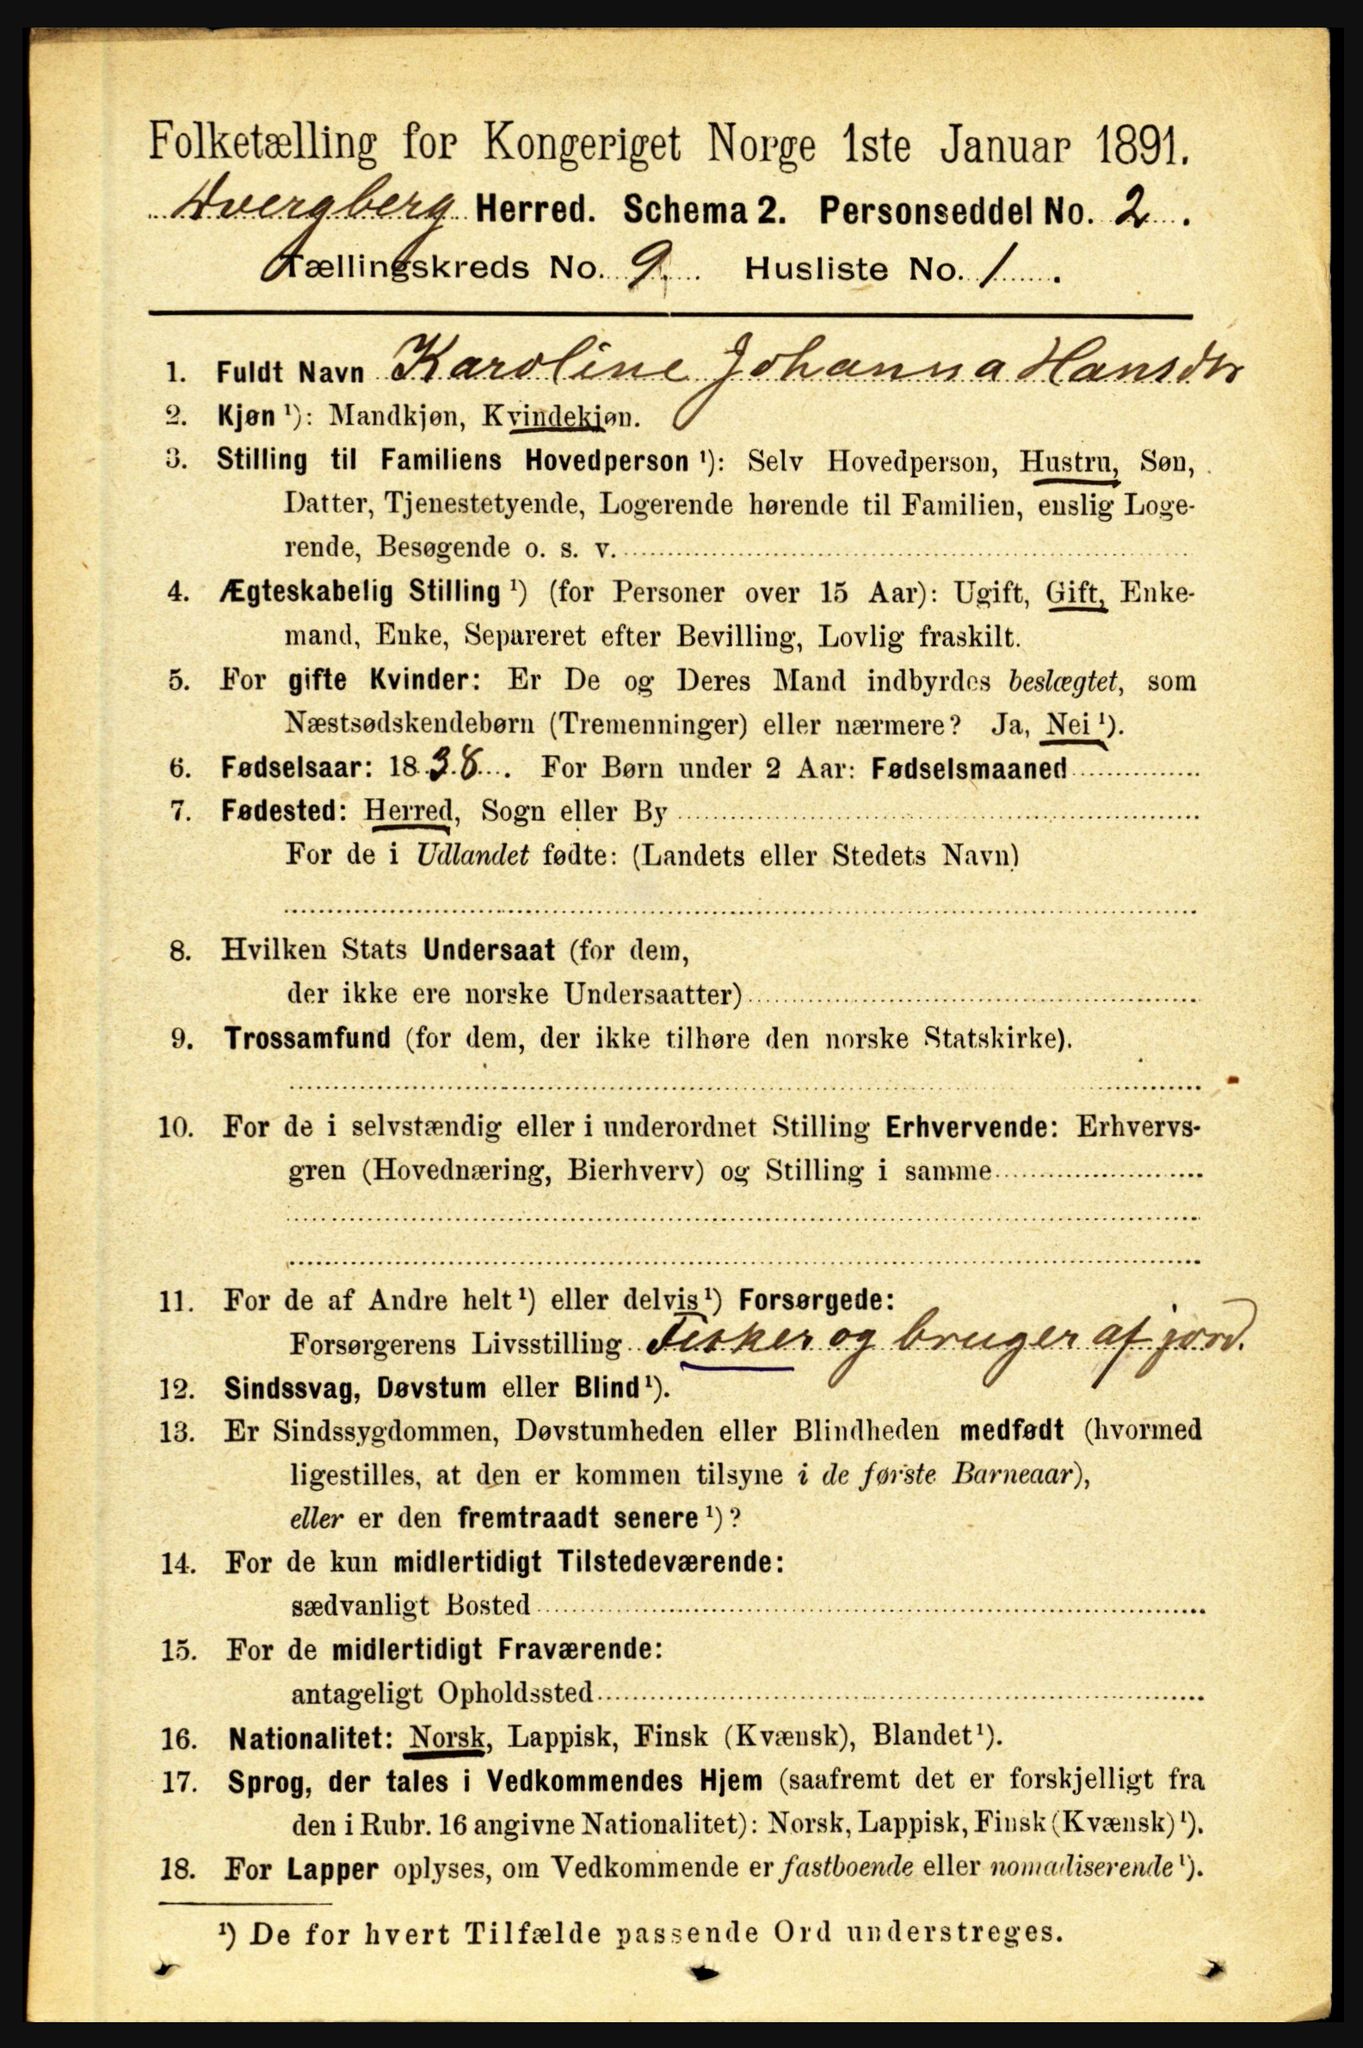 Folketælling for Kongeriget Norge 1ste Januar 1891.
Dvergberg Herred. Schema 2. Personseddel No. 2.
Tællingskreds No. 9. Husliste No. 1.
1. Fuldt Navn Karoline Johanna Hansdtr
2. Kjøn ¹): Mandkjøn, Kvindekjøn.
3. Stilling til Familiens Hovedperson ¹): Selv Hovedperson, Hustru, Søn,
Datter, Tjenestetyende, Logerende hørende til Familien, enslig Loge-
rende, Besøgende o. s. v.
4. Ægteskabelig Stilling ¹) (for Personer over 15 Aar): Ugift, Gift, Enke-
mand, Enke, Separeret efter Bevilling, Lovlig fraskilt.
5. For gifte Kvinder: Er De og Deres Mand indbyrdes beslægtet, som
Næstsødskendebørn (Tremenninger) eller nærmere? Ja, Nei ¹).
6. Fødselsaar: 1838. For Børn under 2 Aar: Fødselsmaaned
7. Fødested: Herred, Sogn eller By
For de i Udlandet fødte: (Landets eller Stedets Navn)
8. Hvilken Stats Undersaat (for dem,
der ikke ere norske Undersaatter)
9. Trossamfund (for dem, der ikke tilhøre den norske Statskirke).
10. For de i selvstændig eller i underordnet Stilling Erhvervende: Erhvervs-
gren (Hovednæring, Bierhverv) og Stilling i samme
11. For de af Andre helt ¹) eller delvis ¹) Forsørgede:
Forsørgerens Livsstilling Fisker og bruger af jord.
12. Sindssvag, Døvstum eller Blind ¹).
13. Er Sindssygdommen, Døvstumheden eller Blindheden medfødt (hvormed
ligestilles, at den er kommen tilsyne i de første Barneaar),
eller er den fremtraadt senere ¹)?
14. For de kun midlertidigt Tilstedeværende:
sædvanligt Bosted
15. For de midlertidigt Fraværende:
antageligt Opholdssted
16. Nationalitet: Norsk, Lappisk, Finsk (Kvænsk), Blandet ¹).
17. Sprog, der tales i Vedkommendes Hjem (saafremt det er forskjelligt fra
den i Rubr. 16 angivne Nationalitet): Norsk, Lappisk, Finsk (Kvænsk) ¹).
18. For Lapper oplyses, om Vedkommende er fastboende eller nomadiserende ¹).
¹) De for hvert Tilfælde passende Ord understreges.